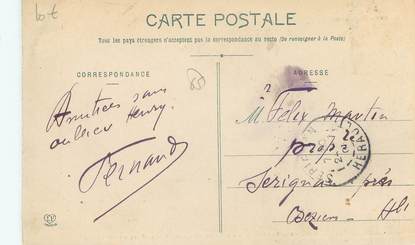 Lot
CARTE POSTALE
Tous les pays étrangers n'acceptent pas la correspondance au recto (Se renseigner à la Poste)
CORRESPONDANCE
ADRESSE
65
Amitiées sans
oublier Henry.
Fernand
M. Félix Marton
prop re
Serignan près
Béziers Hlt
HERAULT